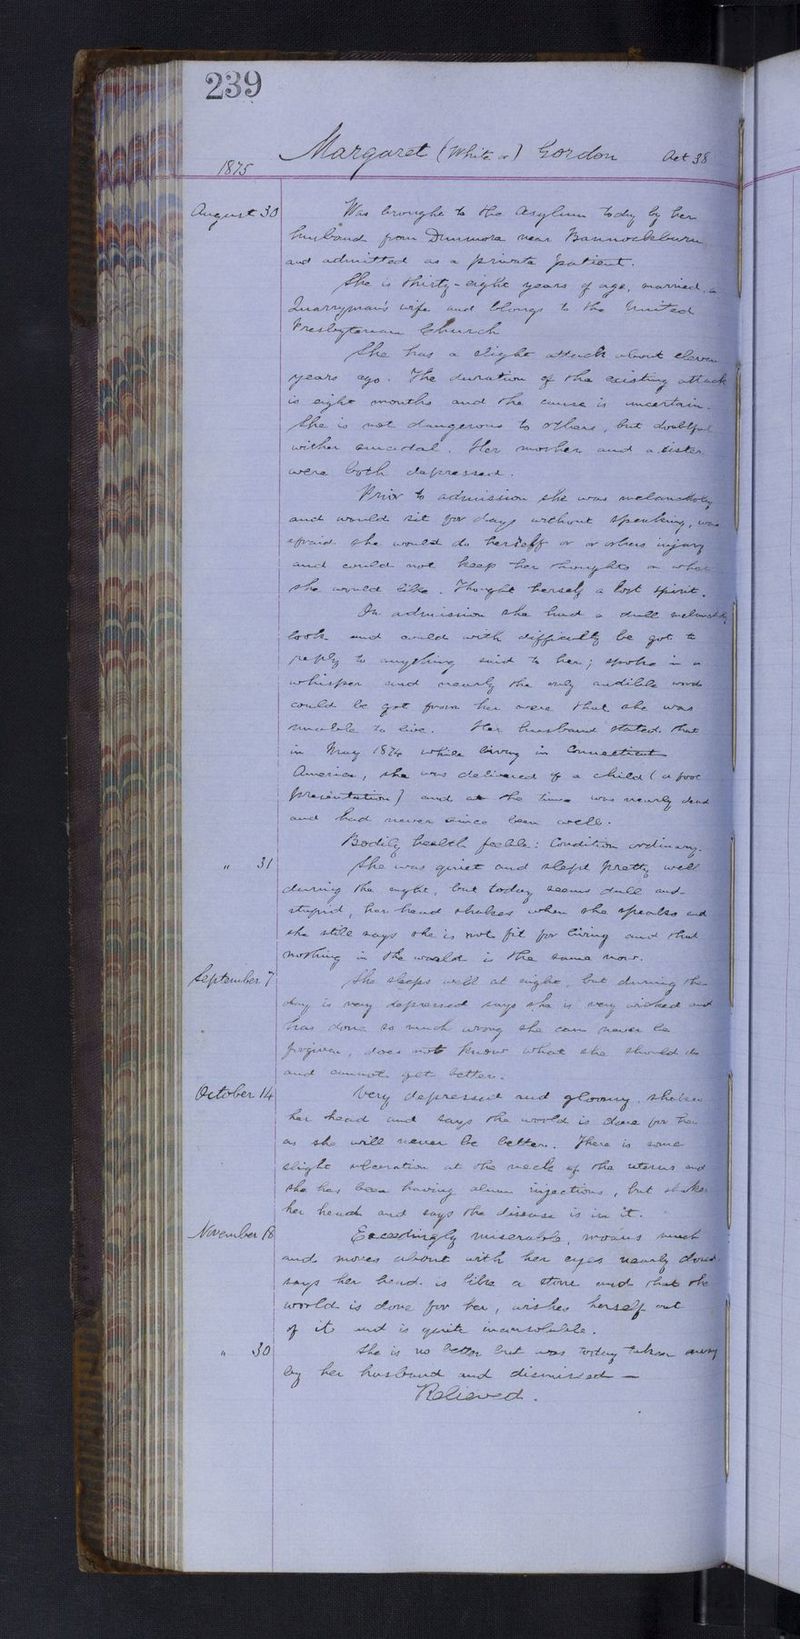 239
Margaret (White or) Gordon Aet 38
1875
August 30 Was brought to the Asylum today by her
husband from Dunmore near Bannockburn
and admitted as a private patient.
She is thirty-eight years of age, married, a
Quarryman's wife and belongs to the United
Presbyterian Church
She had a slight attack about eleven
years ago. The duration of the existing attack
is eight months and the cause is uncertain.
She is not dangerous to others, but doubtful
suicidal. Her mother and a sister
were both depressed.
Prior to admission she was melancholy
and would sit for days without speaking, was
afraid she would do herself or or others injury
and could not keep her thoughts on what
she would like. Thought herself a lost spirit.
On admission she had a dull melancholy
look and could with difficulty be got to
reply to anything said to her; spoke in a
whisper and nearly the only audible words
could be got from her were that she was
unable to live. Her husband stated that
in May 1874 while living in Connecticut
America, she was delivered of a child (a foot
presentation) and at the time was nearly dead
and had never since been well.
Bodily health feeble: Condition ordinary.
" 31 She was quiet and slept pretty well
during the night, but today seems dull and
stupid, her head shakes when she speaks and
she still says she is not fit for living and that
nothing in the world is the same now.
September 7 She sleeps well at night, but during the
day is very depressed says she is very wicked and
has done so much wrong she can never be
forgiven, does not know what she should do
and cannot get better.
October 14 Very depressed and gloomy, shakes
her head and says the world is done for her
as she will never be better. There is some
slight ulceration at the neck of the uterus and
she has been having alum injections, but shakes
her head and says the disease is in it.
November 18 Exceedingly miserable, moans much
and moves about with her eyes nearly closed
says her head is like a stone and that the
world is done for her, wishes herself out
of it and is quite inconsolable.
" 30 She is no better but was today taken away
by her husband and dismissed —
Relieved.